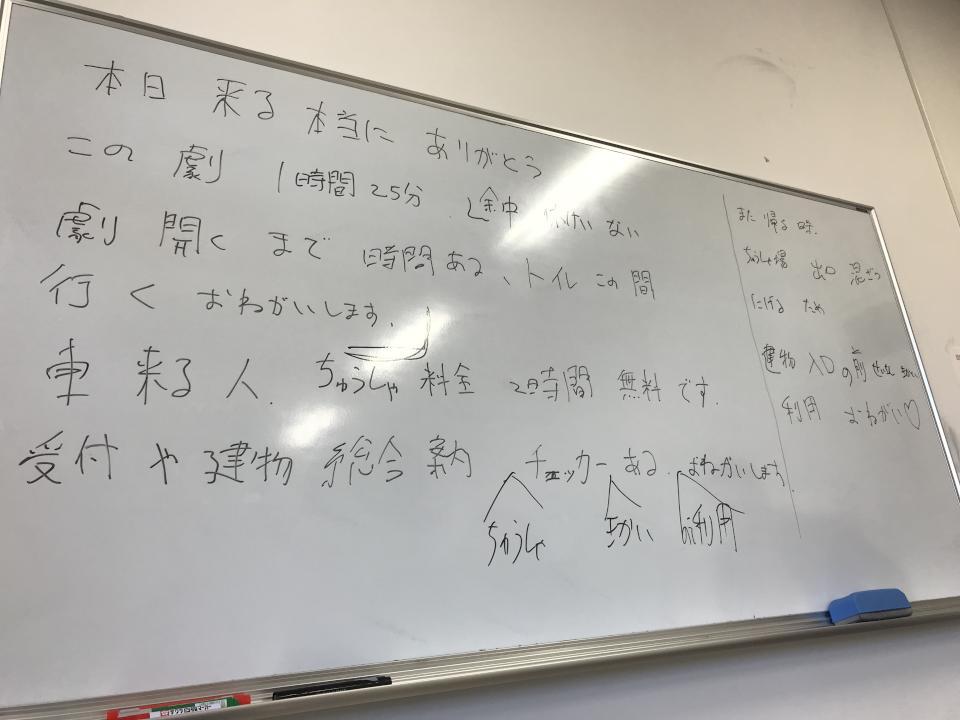 本日 来る 本当に ありがとう
この 劇 1時間25分 途中 ない
劇 開く まで 時間ある、トイレ この間
行く おねがいします.
車 来る 人. ちゅうしゃ 料金 2時間 無料です.
受付 や 建物 総合案内 チェッカー ある. おねがいします.
ちゅうしゃ きかい 利用
また 帰る 時.
ちゅうしゃ場 出口 混ざつ
にげる ため
建物 入口の前
利用 おねがい♡